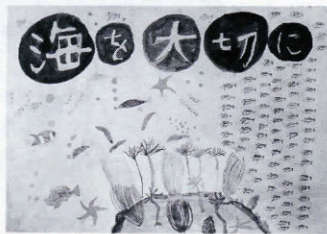 海を大切に